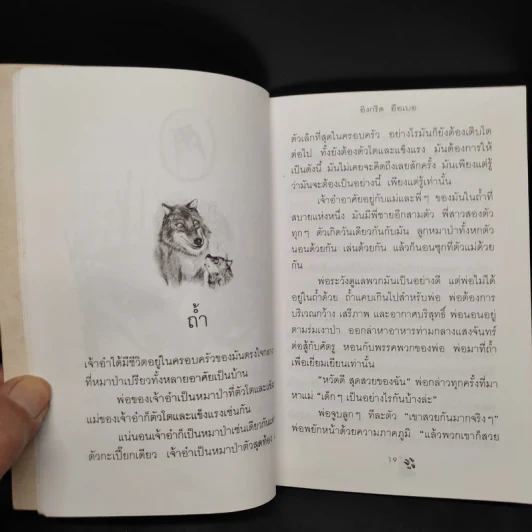 ถ้ำ
เจ้าอำได้มีชีวิตอยู่ในครอบครัวของมันตรงใจกลาง
ที่หมาป่าเปรียวทั้งหลายอาศัยเป็นบ้าน
พ่อของเจ้าอำเป็นหมาป่าที่ตัวโตและแข็ง
แม่ของเจ้าอำก็ตัวโตและแข็งแรงเช่นกัน
แน่นอนเจ้าอำก็เป็นหมาป่าเช่นเดียวกัน
ตัวกะเปี๊ยกเดียว เจ้าอำเป็นหมาป่าตัวสุดท้อง
อิงกริด อือเบอ
ตัวเล็กที่สุดในครอบครัว อย่างไรมันก็ยังต้องเติบโต
ต่อไป ทั้งยังต้องตัวโตและแข็งแรง มันต้องการให้
เป็นดังนี้ มันไม่เคยจะคิดถึงเลยสักครั้ง มันเพียงแต่รู้
ว่ามันจะต้องเป็นอย่างนี้ เพียงแต่รู้เท่านั้น
เจ้าอำอาศัยอยู่กับแม่และพี่ๆ ของมันในถ้ำที่
สบายแห่งหนึ่ง มันมีพี่ชายอีกสามตัว พี่สาวสองตัว
ทุกๆ ตัวเกิดวันเดียวกันกับมัน ลูกหมาป่าทั้งหกตัว
นอนด้วยกัน เล่นด้วยกัน แล้วก็นอนซุกที่ตัวแม่ด้วย
กัน
พ่อระวังดูแลพวกมันเป็นอย่างดี แต่พ่อไม่ได้
อยู่ในถ้ำด้วย ถ้ำแคบเกินไปสำหรับพ่อ พ่อต้องการ
บริเวณกว้าง เสรีภาพ และอากาศบริสุทธิ์ พ่อนอนอยู่
ตามร่มเงาป่า ออกล่าหาอาหารท่ามกลางแสงจันทร์
ต่อสู้กับศัตรู หอนกับพรรคพวกของพ่อ พ่อมาที่ถ้ำ
เพื่อเยี่ยมเยียนเท่านั้น
"หวัดดี สุดสวยของฉัน" พ่อกล่าวทุกครั้งที่มา
หาแม่ "เด็กๆ เป็นอย่างไรกันบ้างล่ะ"
พ่อจูบลูกๆ ทีละตัว "เขาสวยกันมากจริงๆ"
พ่อพยักหน้าด้วยความภาคภูมิ "แล้วพวกเขาก็สวย
19